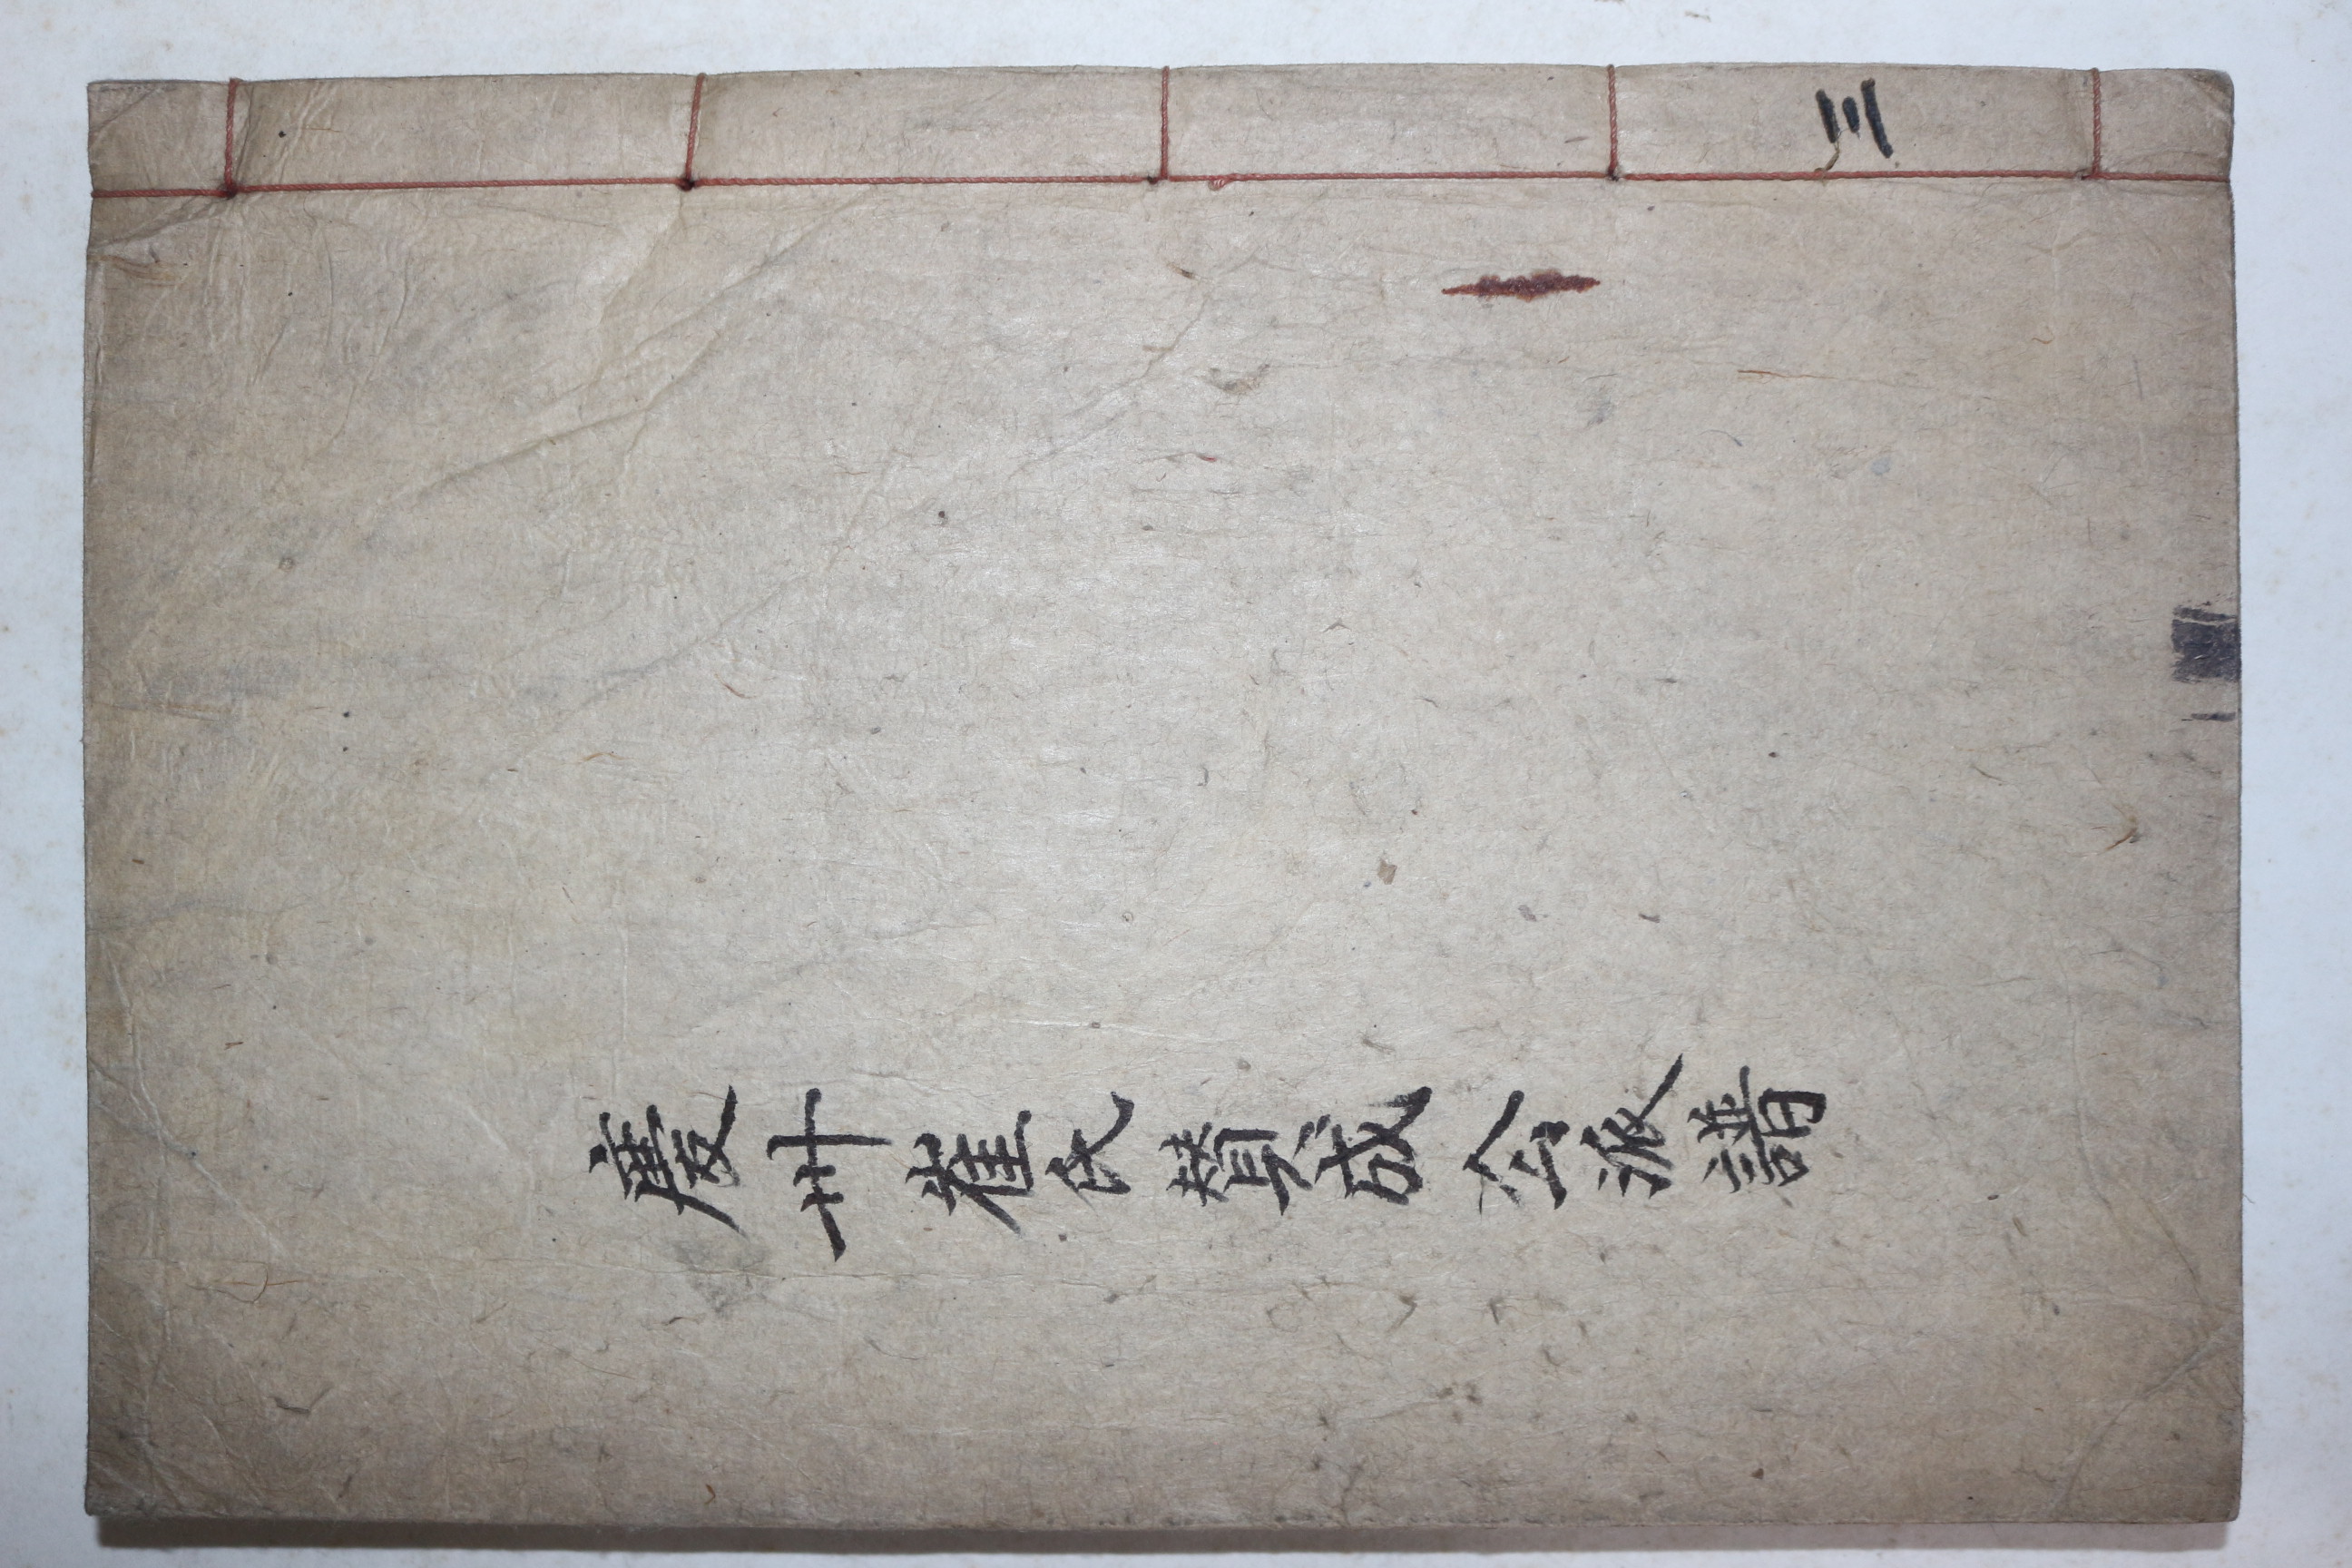 慶州崔氏贊成公派譜
三